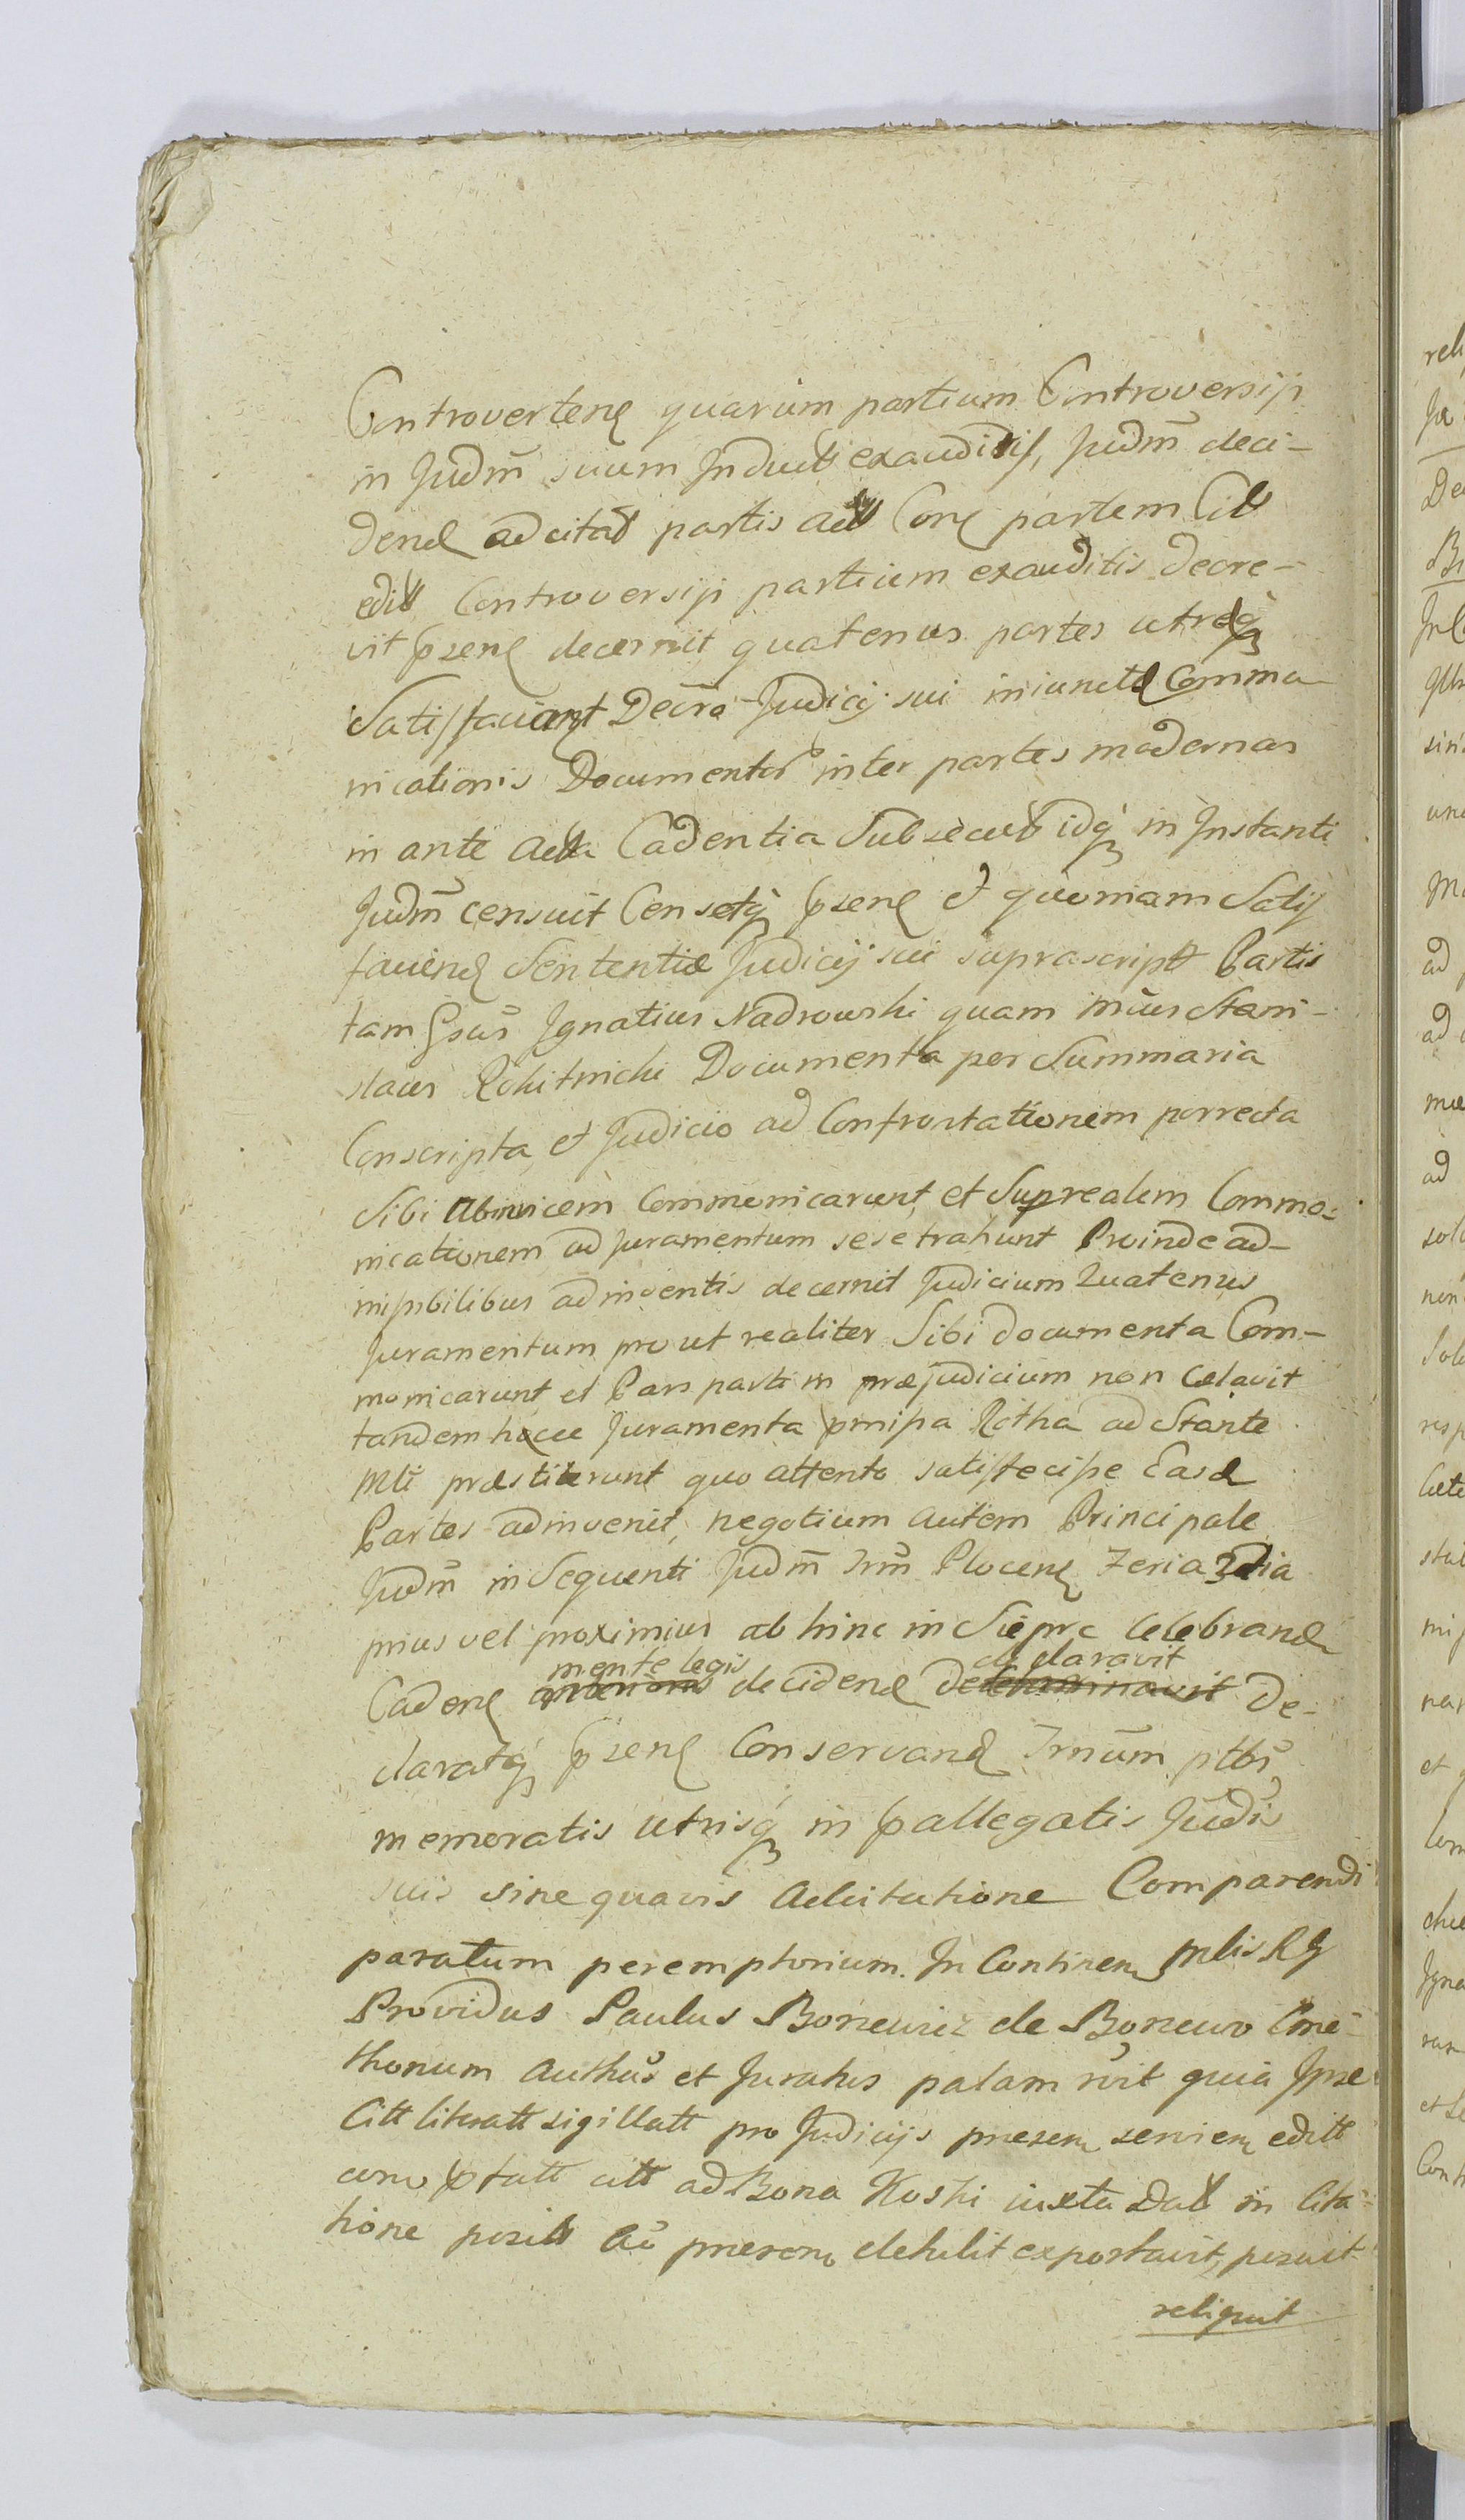 Controverten quarum partium Controversijs
in Judm suum Induct exauditis, Judm deci-
dend ad citat partis act Con partem Cit
edit Controversijs partium exauditis decre-
vit psen decernit quatenus partes utræq
Satisfaciant Decro Judicij sui iniunctæ Commu-
nicationis Documentor inter partes modernas
in ante acta Cadentia Subsecut idq in Instanti
Judm censuit Censetq psen et quoniam Satis
faciend Sententiæ Judicij sui suprascript Partis
tam Gsus Ignatius Nadrowski quam Mcus Stani-
slaus Rokitnicki Documenta per Summaria
Conscripta et Judicio ad Confrontationem porrecta
Sibi abinvicem Communicarunt, et Supr realem Commu-
nicationem ad juramentum sese trahunt Proinde ad-
missibilibus adinventis decernit Judicium Quatenus
Juramentum pro ut realiter Sibi documenta Com-
monicarunt et Pars parti in præjudicium non Celavit
tandem hæcce Juramenta prmissa Rotha ad Stante
Mli præstiterunt quo attento satisfecisse Easd
Partes adinvenit, negotium autem Principale
Judm in Sequenti Judm Trm Plocen Feria 3tia
prius vel proximius ab hinc in Sieprc Celebrand
mente legis declaravit
Caden decidend determinavit De-
claratq psen Conservand Trnum ptbs
memoratis utrisq in pallegatis Judis
suis sine quavis Adcitatione Comparendi
paratum peremptorium. In Continen Mlis RJ
Providus Paulus Boniewicz de Boniewo Cme-
thonum Authus et Juratus palam rvit quia Ipse
Citt literatt sigillatt pro Judicijs præsen servien editt
unio ptatt citt ad Bona Koski iuxta Dat in Cita-
tione posit Ao præsen detulit exportavit, posuit
reliquit